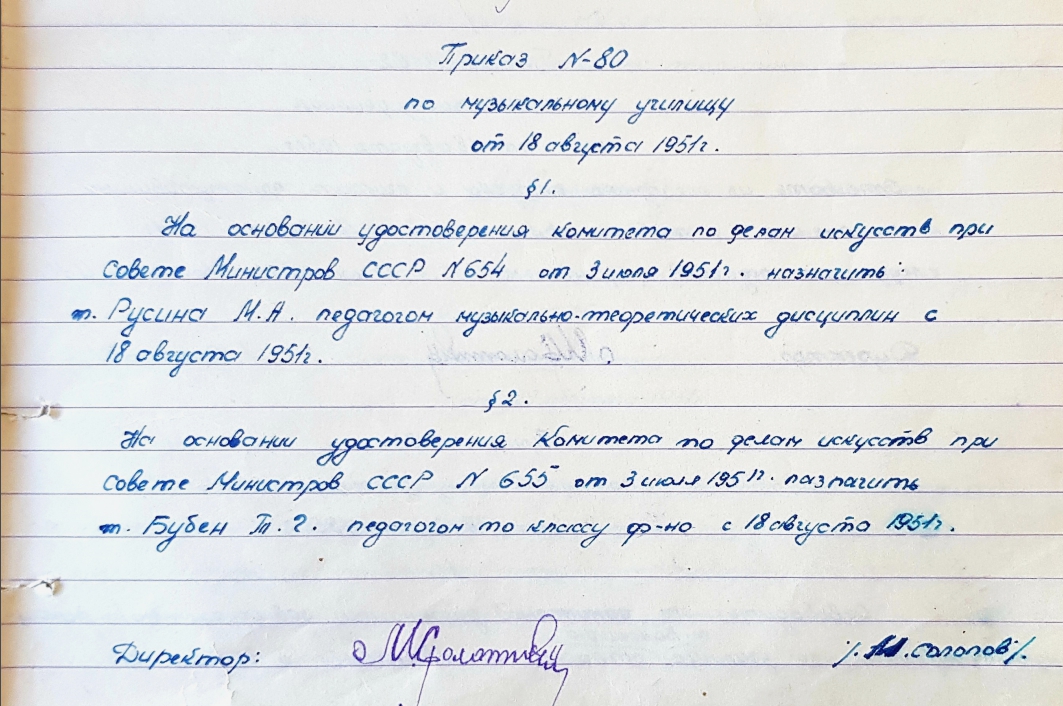 Приказ N-80
по музыкальному училищу
от 18 августа 1951г.
§1.
На основании удостоверения Комитета по делам искусств при
Совете Министров СССР N654 от 3 июля 1951г. назначить:
т. Русина М.А. педагогом музыкально-теоретических дисциплин с
18 августа 1951г.
§2.
На основании удостоверения Комитета по делам искусств при
Совете Министров СССР N 655 от 3 июля 1951г. назначить
т. Бубен Т. Г. педагогом по классу ф-но с 18 августа 1951г.
Директор: /М. Солопов/.